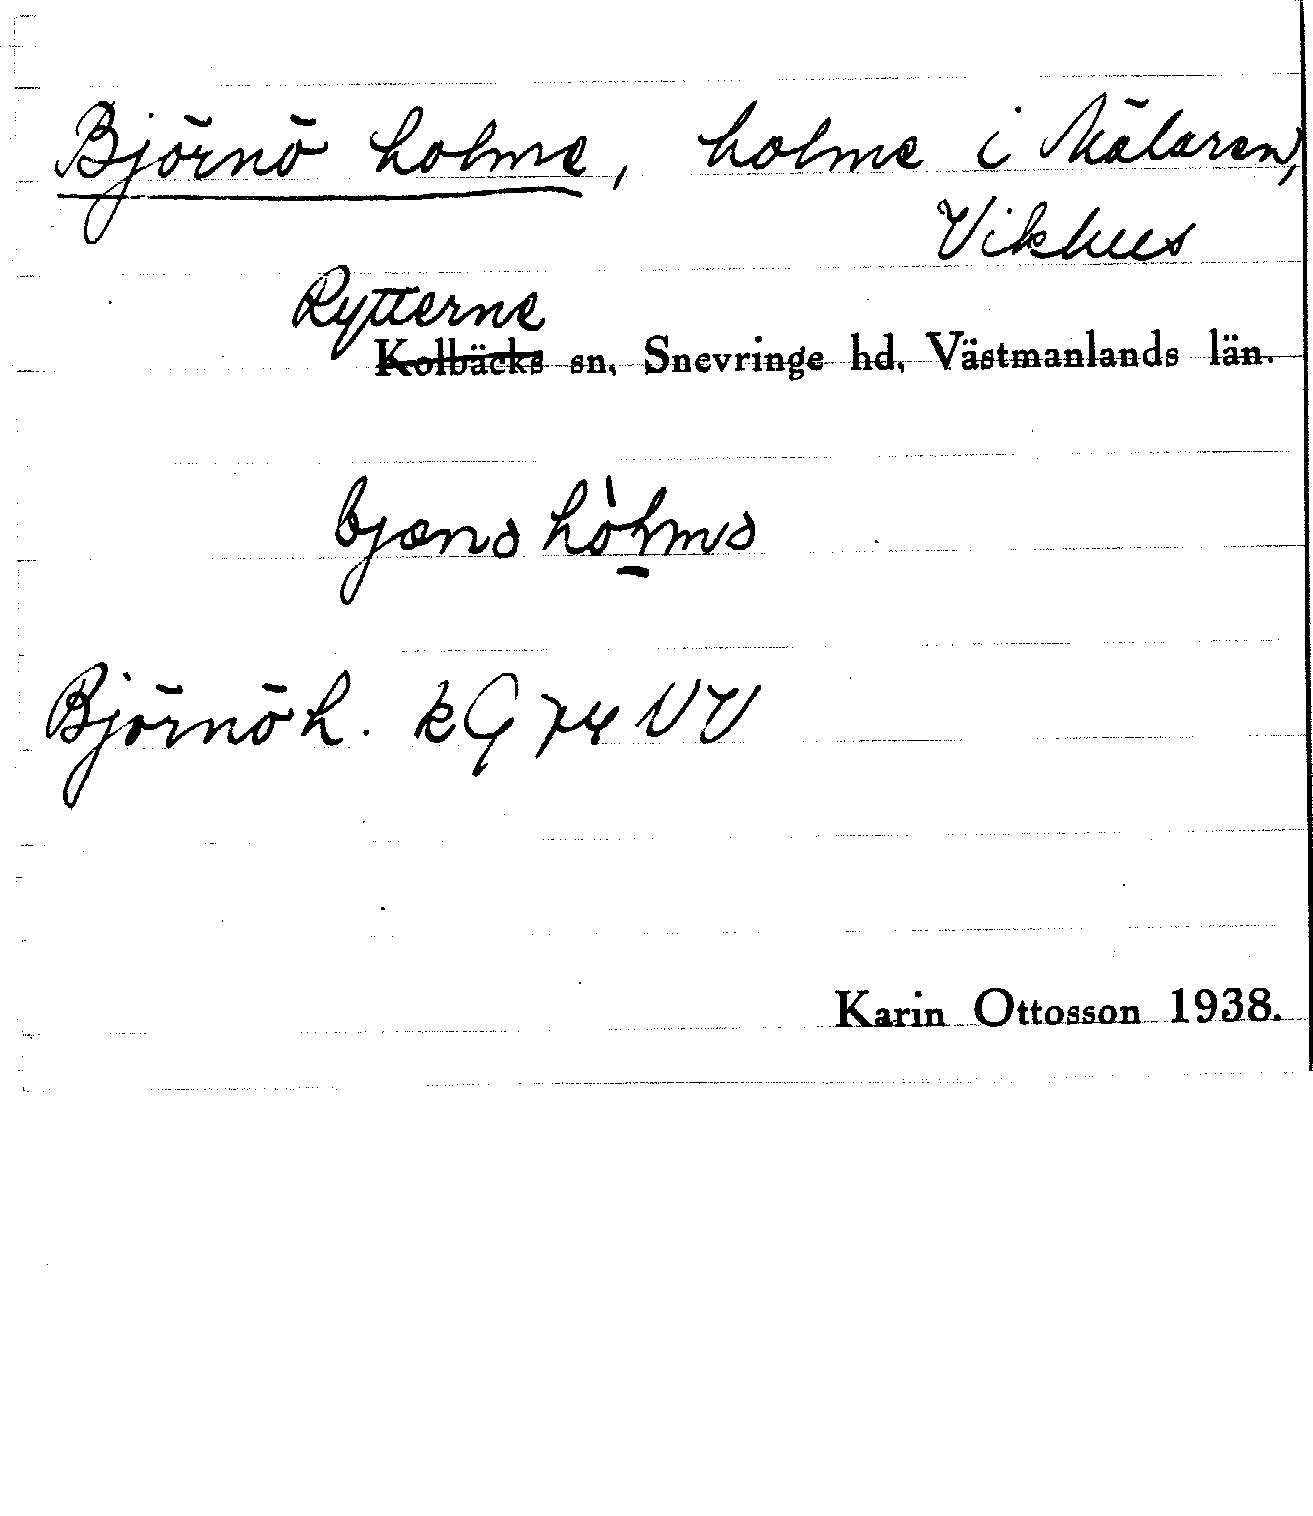 Björnö holme, holme i Mälaren,
Vikhus
Rytterne
Kolbäcks sn, Snevringe hd, Västmanlands län.
Björnö h. kG 74 NV
Karin Ottosson 1938.